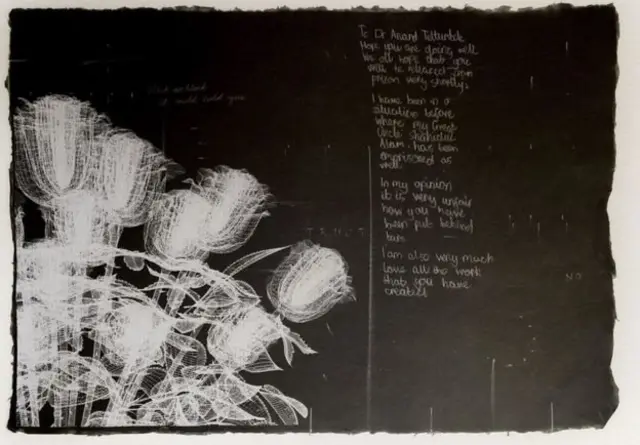 To Dr Anand Teltumbde
Hope you are doing well
We all hope that you
will be released from
prison very shortly.
I have been in a
situation before
where my Great
Uncle Shahidul
Alam has been
imprisoned as
well.
In my opinion
it is very unfair
how you have
been put behind
bars
I am also very much
love all the work
that you have
created
NO